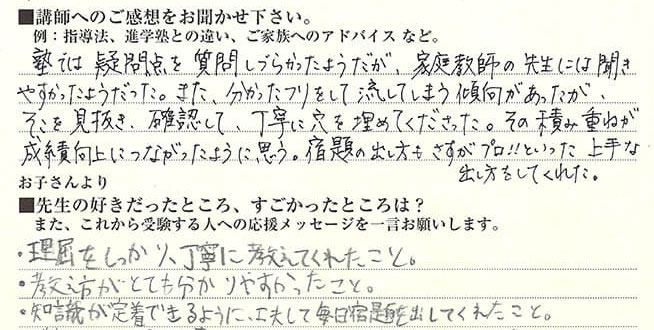 ■講師へのご感想をお聞かせ下さい。
例：指導法、進学塾との違い、ご家族へのアドバイス など。
塾では 疑問点を 質問しづらかったようだが、家庭教師の先生には聞き
やすかったようだった。また、分かったフリをして 流してしまう傾向があったが、
そこを見抜き、確認して、丁寧に穴を埋めてくださった。その積み重ねが
成績向上につながったように思う。宿題の出し方も さすがプロ!!といった 上手な
出し方をしてくれた。
お子さんより
■先生の好きだったところ、すごかったところは？
また、これから受験する人への応援メッセージを一言お願いします。
・理屈をしっかり、丁寧に教えてくれたこと。
・教え方がとても分かりやすかったこと。
・知識が定着できるように、工夫して毎日宿題を出してくれたこと。